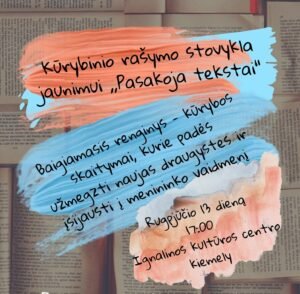 Kūrybinio rašymo stovykla
jaunimui „Pasakoja tekstai"
Baigiamasis renginys - kūrybos
skaitymai, kurie padės
užmegzti naujas draugystes ir
įsijausti į menininko vaidmenį
Rugpjūčio 13 diena
17:00
Ignalinos kultūros centro
kiemely